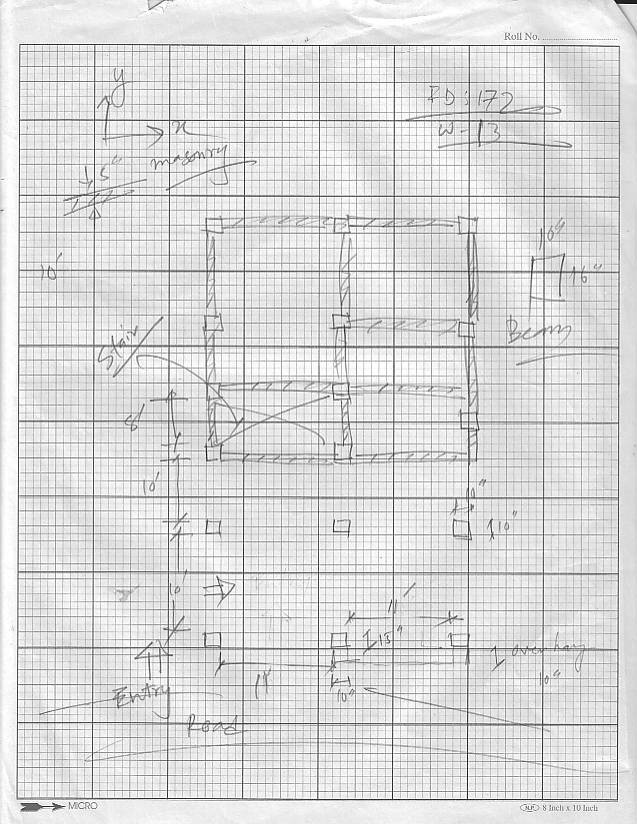 Roll No.
y
ID: 172
x
W-13
5"
masonry
10"
10'
16"
Stair
Beam
8'
10'
10"
10"
10'
11'
15"
1 overhang
11'
10"
10"
Entry
Road
MICRO
8 Inch x 10 Inch